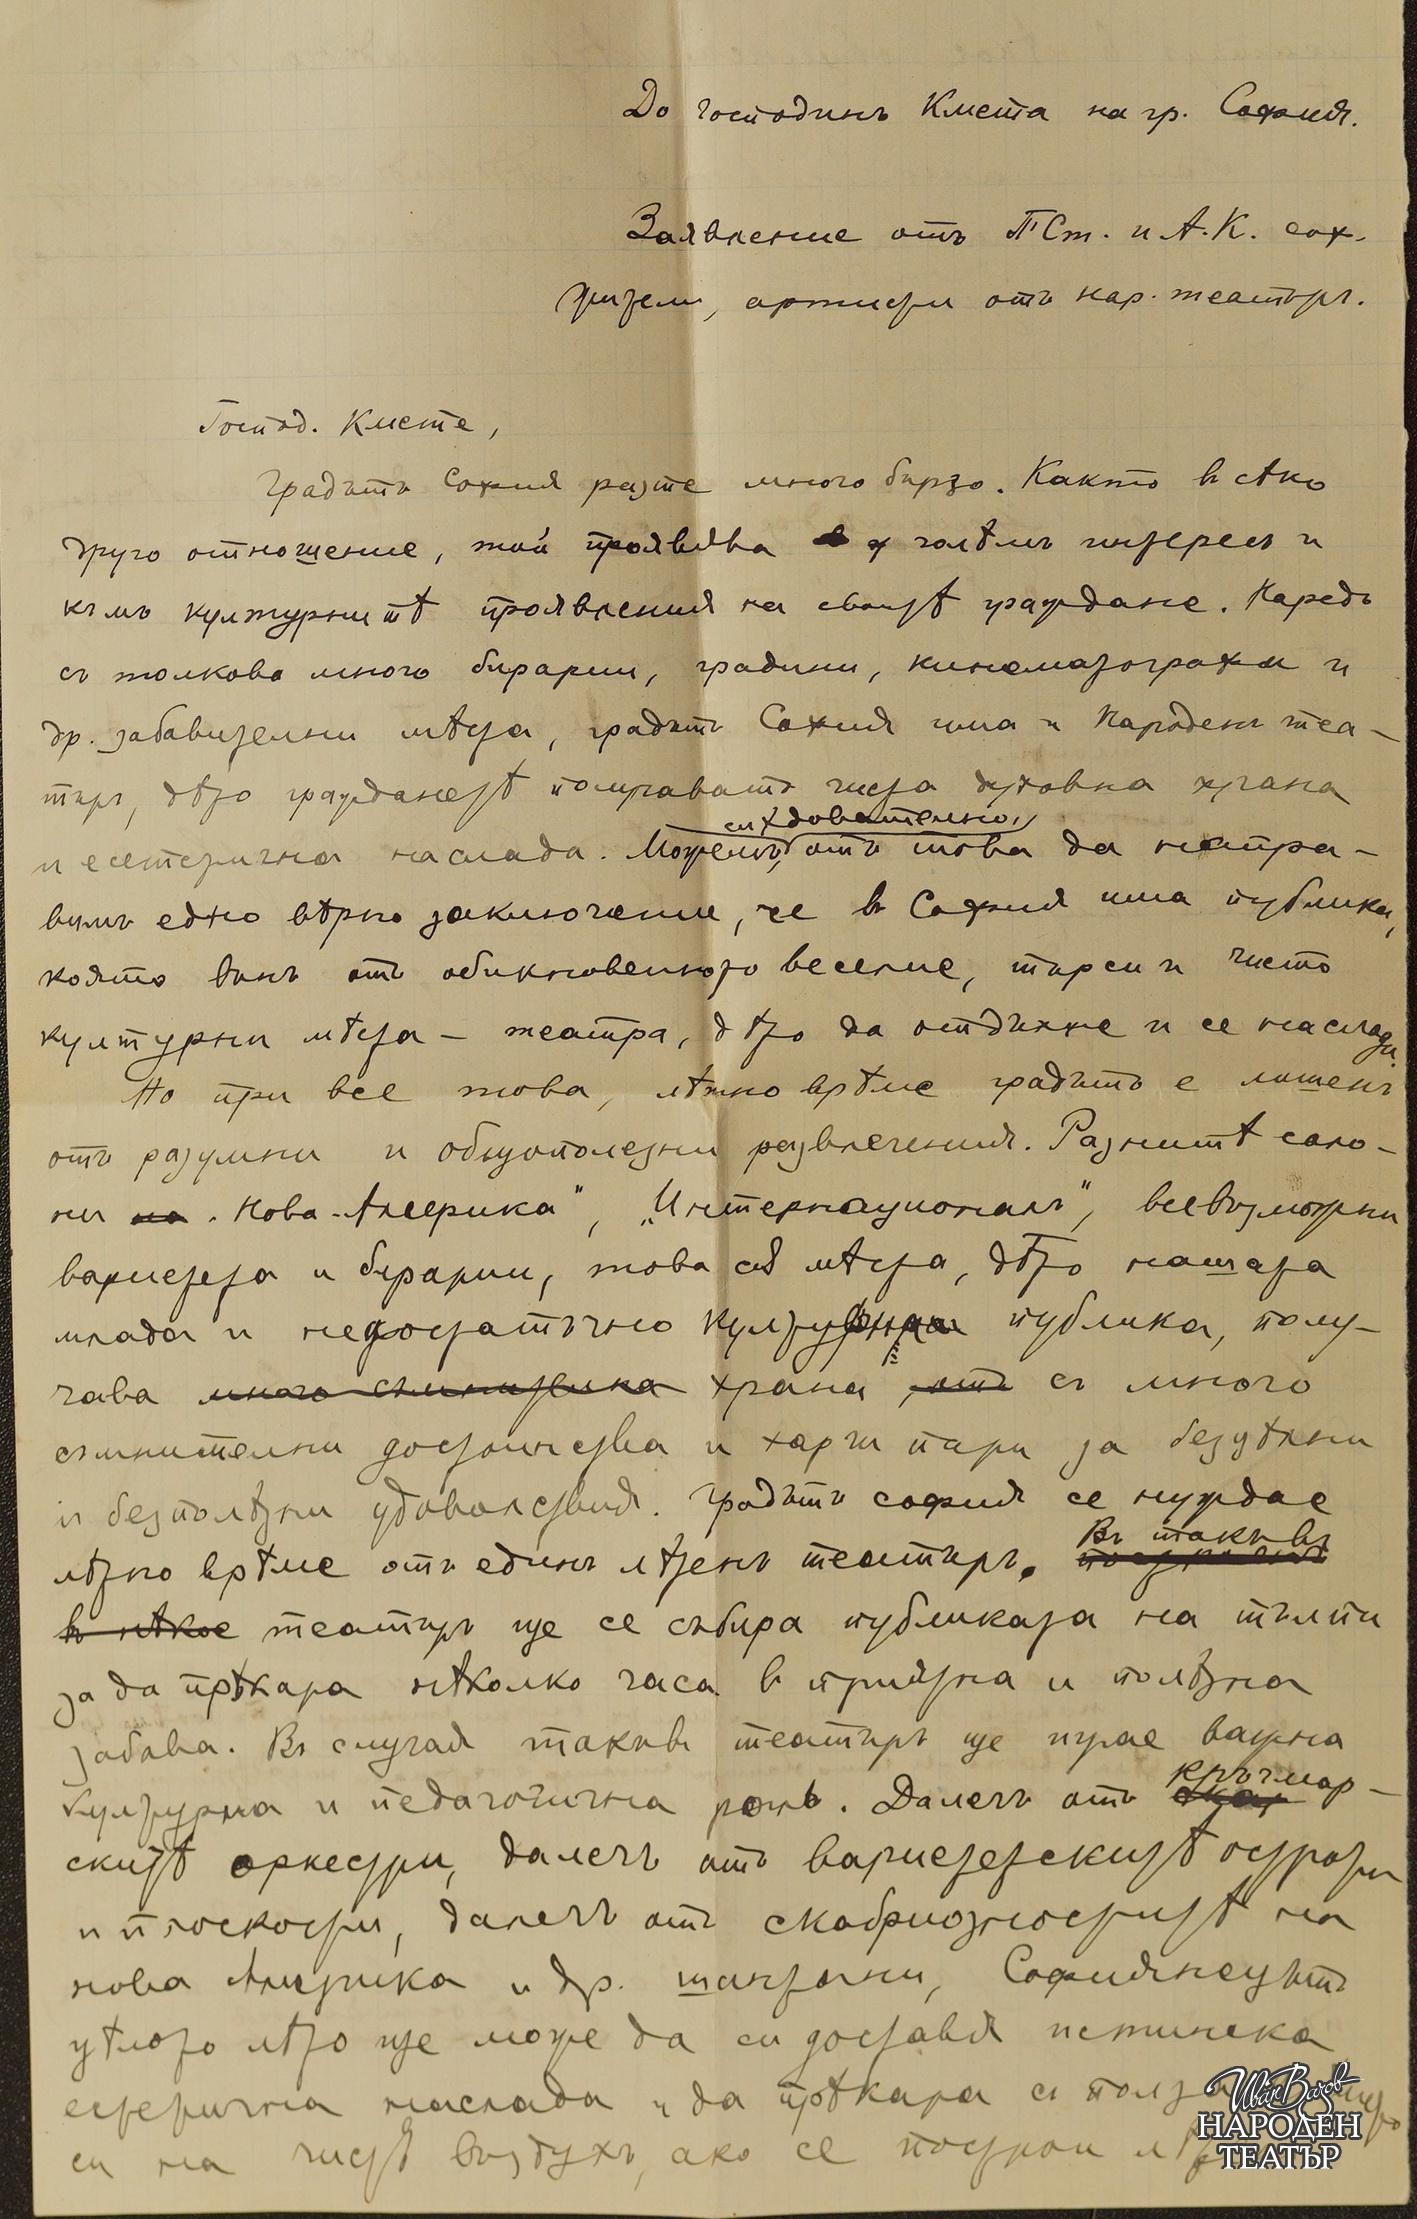 До господинъ Кмета на гр. София.
Заявление отъ П Ст. и А. К. соф.
жители, артисти отъ нар. театъръ.
Господ. Кмете,
Градътъ София расте много бързо. Както в сѣко
друго отношение, той проявлява голѣмъ интересъ и
къмъ културнитѣ проявления на своитѣ граждане. Наредъ
съ толкова много бирарии, градини, кинематографи и
др. забавителни мѣста, градътъ София има и Народенъ теа-
търъ, дѣто гражданетѣ получаватъ чиста духовна храна
и естетична наслада. Можемъ, слѣдователно, отъ това да напра-
вимъ едно вѣрно заключение, че въ София има публика,
която вънъ отъ обикновенното веселие, търси и чисто
културни мѣста – театра, дѣто да отдъхне и се наслади.
Но при все това, лѣтно врѣме градътъ е лишенъ
отъ разумни и общополезни развлечения. Разнитѣ сало-
ни на „Нова-Америка", „Интернационалъ", всевъзможни
вариетета и бирарии, това сѫ мѣста, дѣто нашата
млада и недостатъчно културна публика, полу-
чава много съмнителна храна отъ съ много
съмнителни достоинства и харчи пари за безцѣлни
и безполѣзни удоволствия. Градътъ София се нуждае
лѣтно врѣме отъ единъ лѣтенъ театъръ. Въ такъвъ
в нѣкое театъръ ще се събира публиката на тълпи
за да прѣкара нѣколко часа в приятна и полѣзна
забава. Въ случая такъвъ театъръ ще играе важна
културна и педагогична роль. Далечъ отъ кръчмар-
скитѣ оркестри, далечъ отъ вариететскитѣ остроти
и плоскости, далечъ отъ скабриозноститѣ на
нова Америка и др. шантани, Софиянецътъ
цѣлото лѣто ще може да си доставя истинска
естетична наслада и да прѣкара съ полза
си на чистъ въздухъ, ако се построи
Иван Вазов
НАРОДЕН
ТЕАТЪР